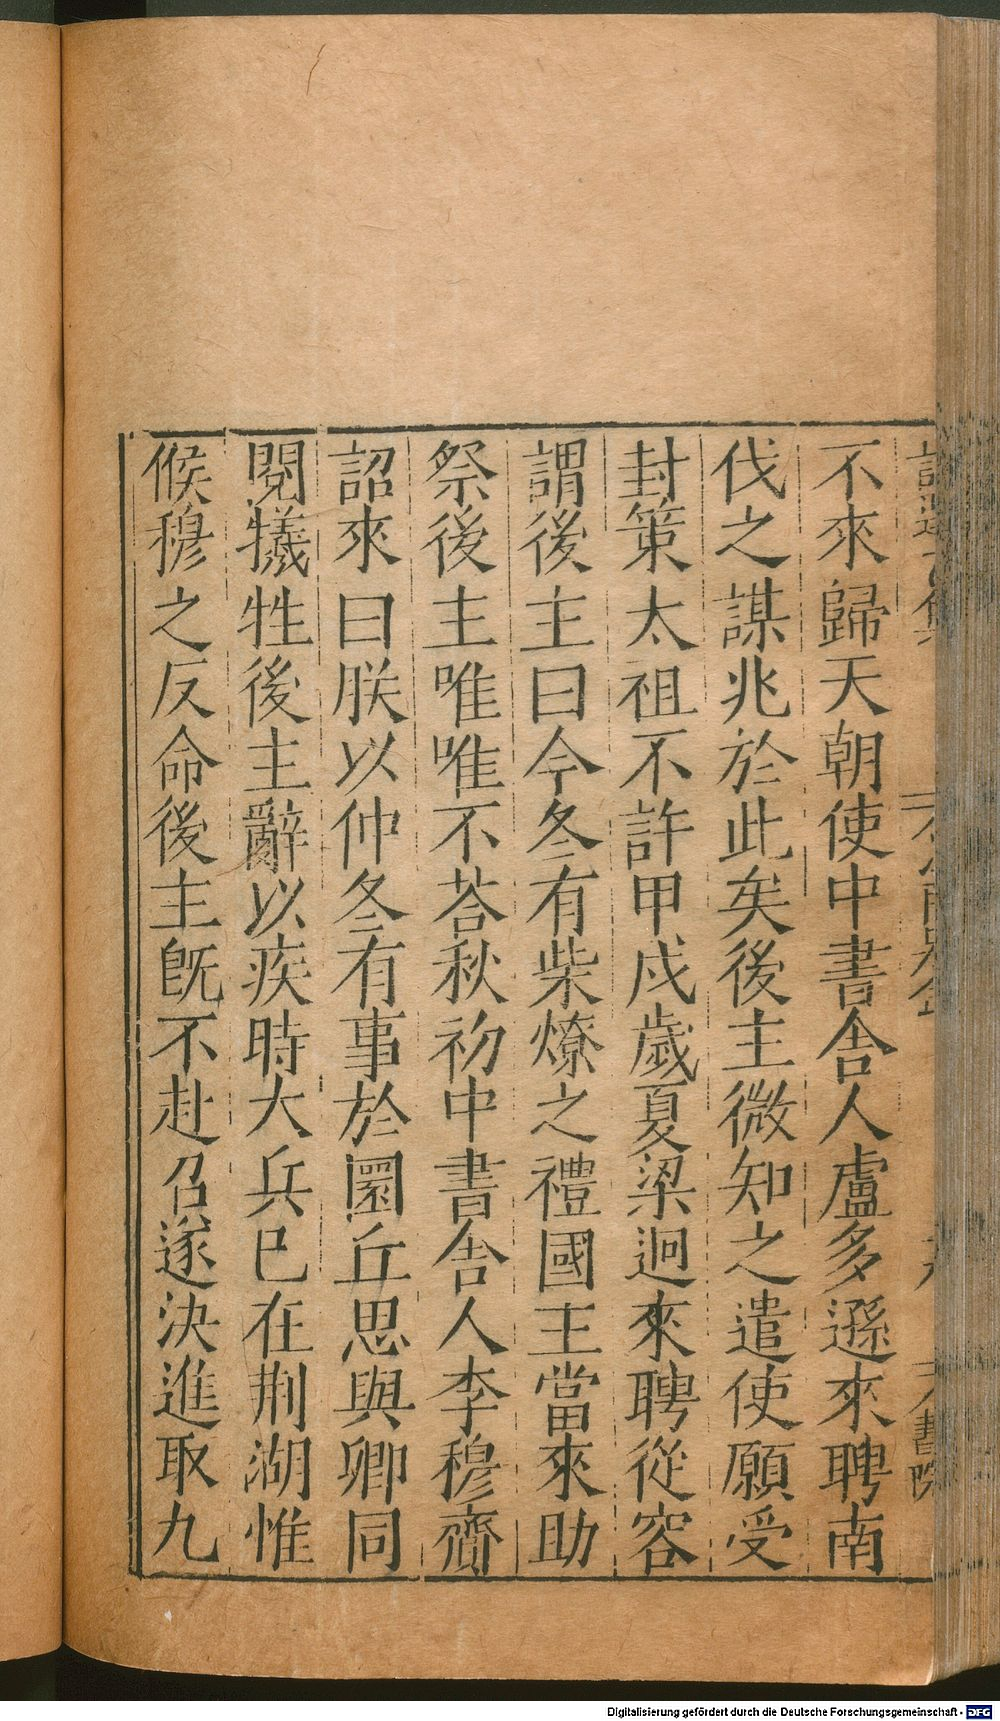 不來歸天朝使中書舍人盧多遜來聘南
伐之謀兆於此矣後主微知之遣使願受
封策太祖不許甲戍歲夏梁迥來聘從容
謂後主曰今冬有柴燎之禮國主當來助
祭後主唯唯不荅秋初中書舍人李穆齎
詔來曰朕以仲冬有事於圜丘思與卿同
閱犧牲後主辭以疾時大兵已在荆湖惟
候穆之反命後主旣不赴召遂決進取九
Digitalisierung gefördert durch die Deutsche Forschungsgemeinschaft - DFG